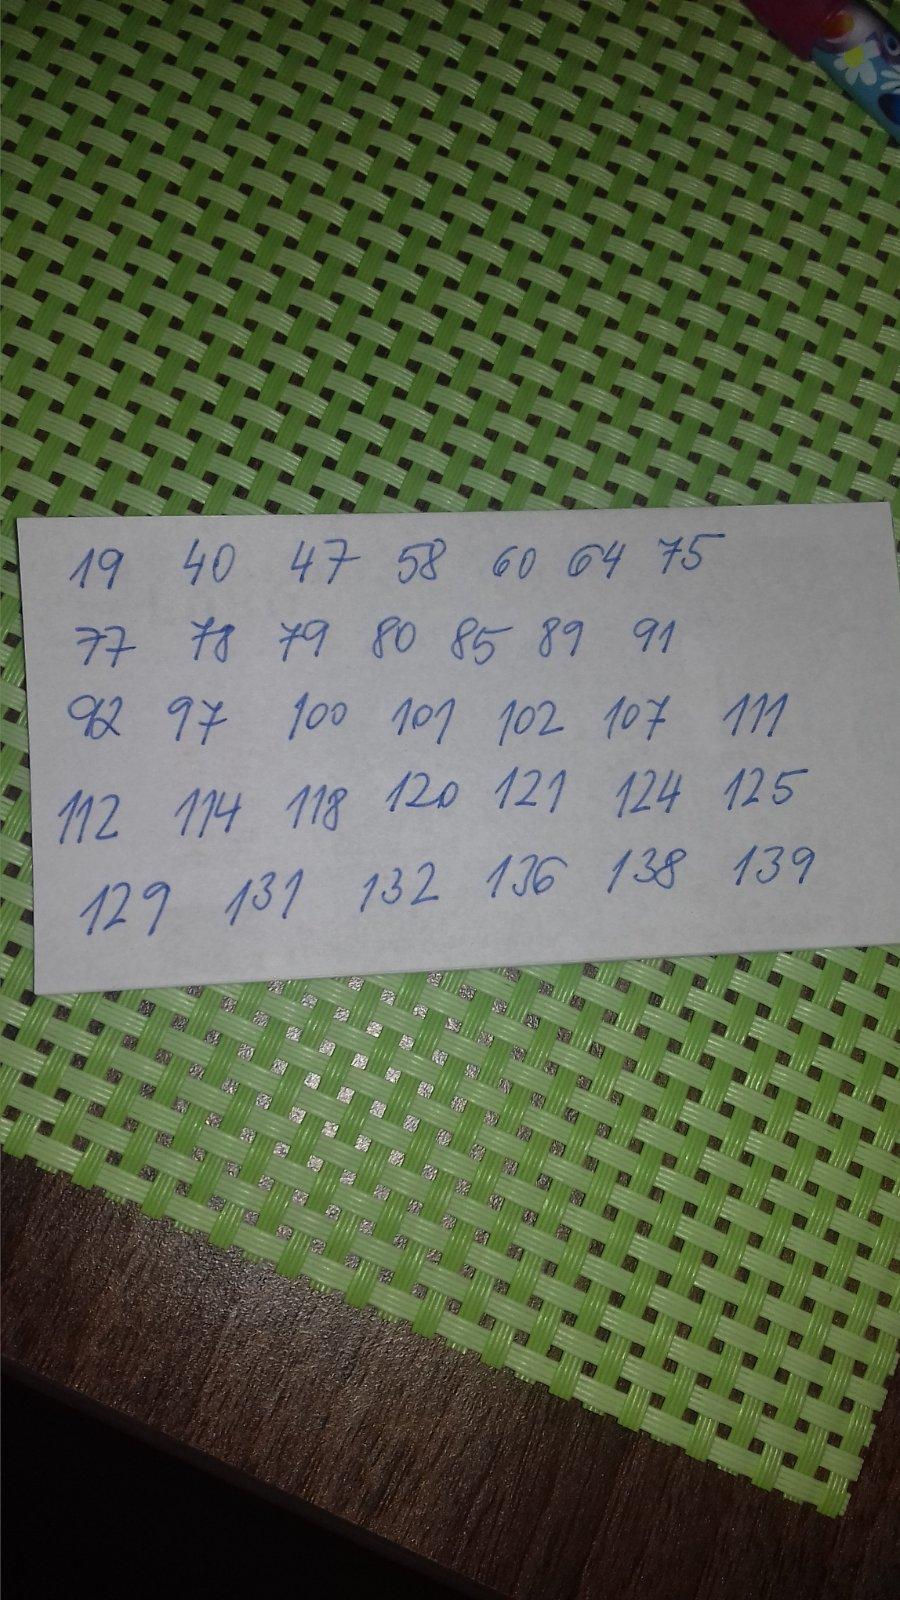 19 40 47 58 60 64 75
77 78 79 80 85 89 91
92 97 100 101 102 107 111
112 114 118 120 121 124 125
129 131 132 136 138 139